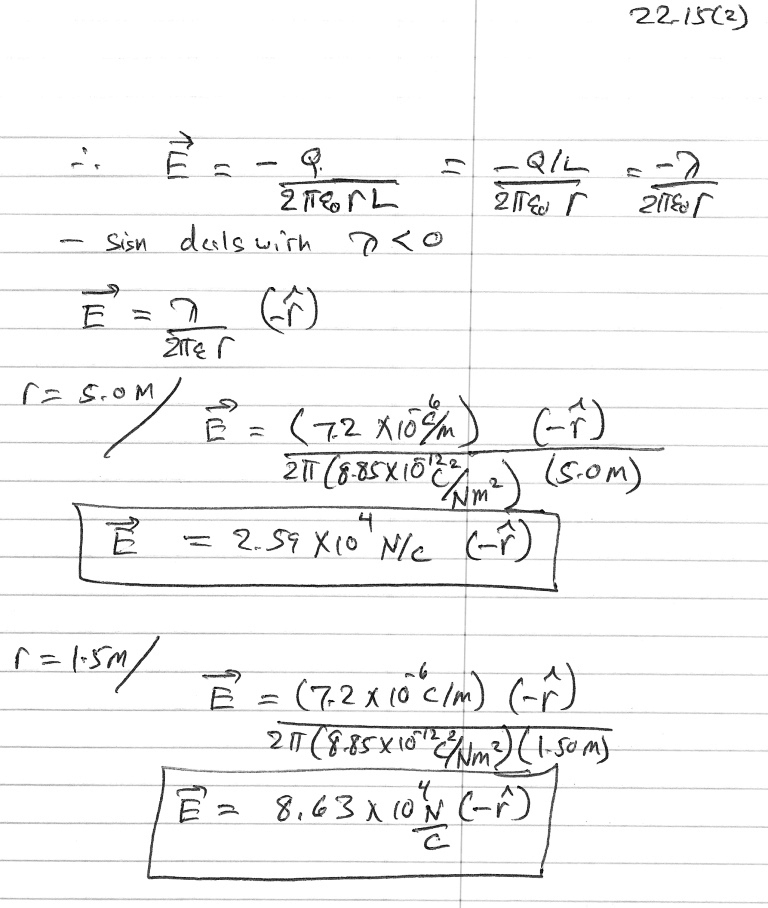 22.15(2)
∴ E⃗ = -Q/(2πε₀rL) = -Q/L/(2πε₀ r) = -λ/(2πε₀r)
- sign deals with λ<0
E⃗ = λ/(2πε r) (-r̂)
r = 5.0 M / E⃗ = (7.2 ×10⁻⁶ C/m) (-r̂)
2π(8.85×10⁻¹² C²/Nm²) (5.0M)
E⃗ = 2.59 ×10⁴ N/C (-r̂)
r = 1.5M / E⃗ = (7.2 × 10⁻⁶ C/m) (-r̂)
2π(8.85×10⁻¹² C²/Nm²)(1.50M)
E⃗ = 8.63 × 10⁴ N/C (-r̂)